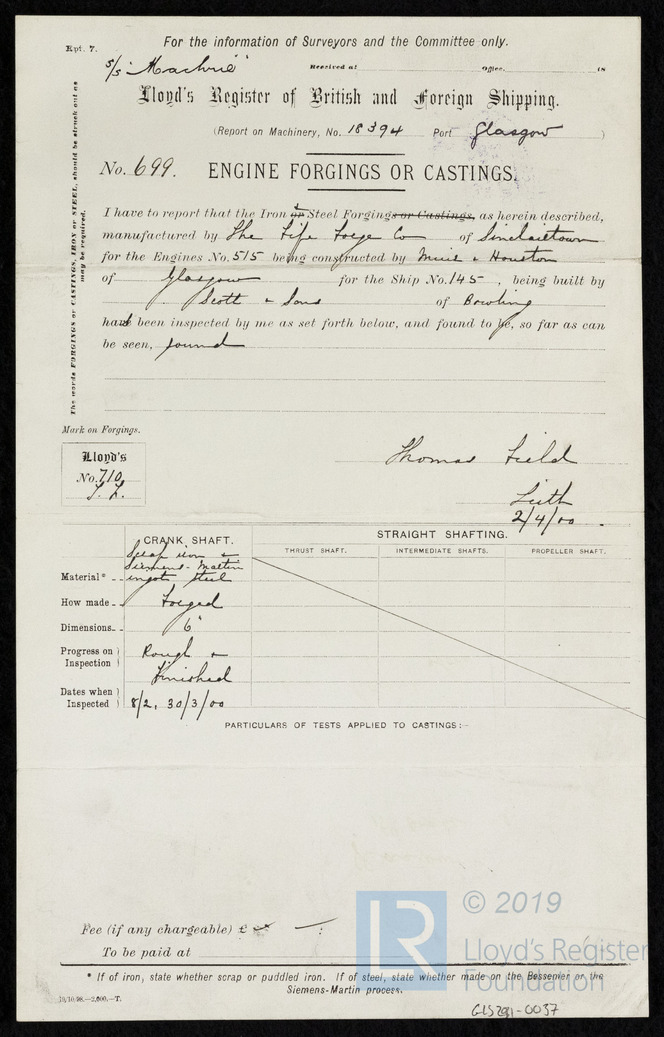 For the information of Surveyors and the Committee only.
Rpt. 7.
S/S "Machrie"
Received at Office. 18
Lloyd's Register of British and Foreign Shipping.
(Report on Machinery, No. 18394 Port Glasgow )
No. 699. ENGINE FORGINGS OR CASTINGS.
The words FORGINGS or CASTINGS, IRON or STEEL, should be struck out as may be required.
I have to report that the Iron or & Steel Forgings or Castings, as herein described,
manufactured by The Fife Forge Co of Sinclairtown
for the Engines No. 515 being constructed by Muir & Houston
of Glasgow for the Ship No. 145 , being built by
Scott & Sons of Bowling
have been inspected by me as set forth below, and found to be, so far as can
be seen, sound
Mark on Forgings.
Lloyd's
No. 710
T. F.
Thomas Field
Leith
2/4/00.
CRANK SHAFT. STRAIGHT SHAFTING.
THRUST SHAFT. INTERMEDIATE SHAFTS. PROPELLER SHAFT.
Material* Scrap iron &
Siemens-Martin
ingot steel
How made Forged
Dimensions 6"
Progress on Inspection Rough &
Finished
Dates when Inspected 8/2, 30/3/00
PARTICULARS OF TESTS APPLIED TO CASTINGS:-
Fee (if any chargeable) £ :
To be paid at
* If of iron, state whether scrap or puddled iron. If of steel, state whether made on the Bessemer or the
Siemens-Martin process.
19/10/98.—2,000.—T.
© 2019
LR
Lloyd's Register
Foundation
GLS291-0037